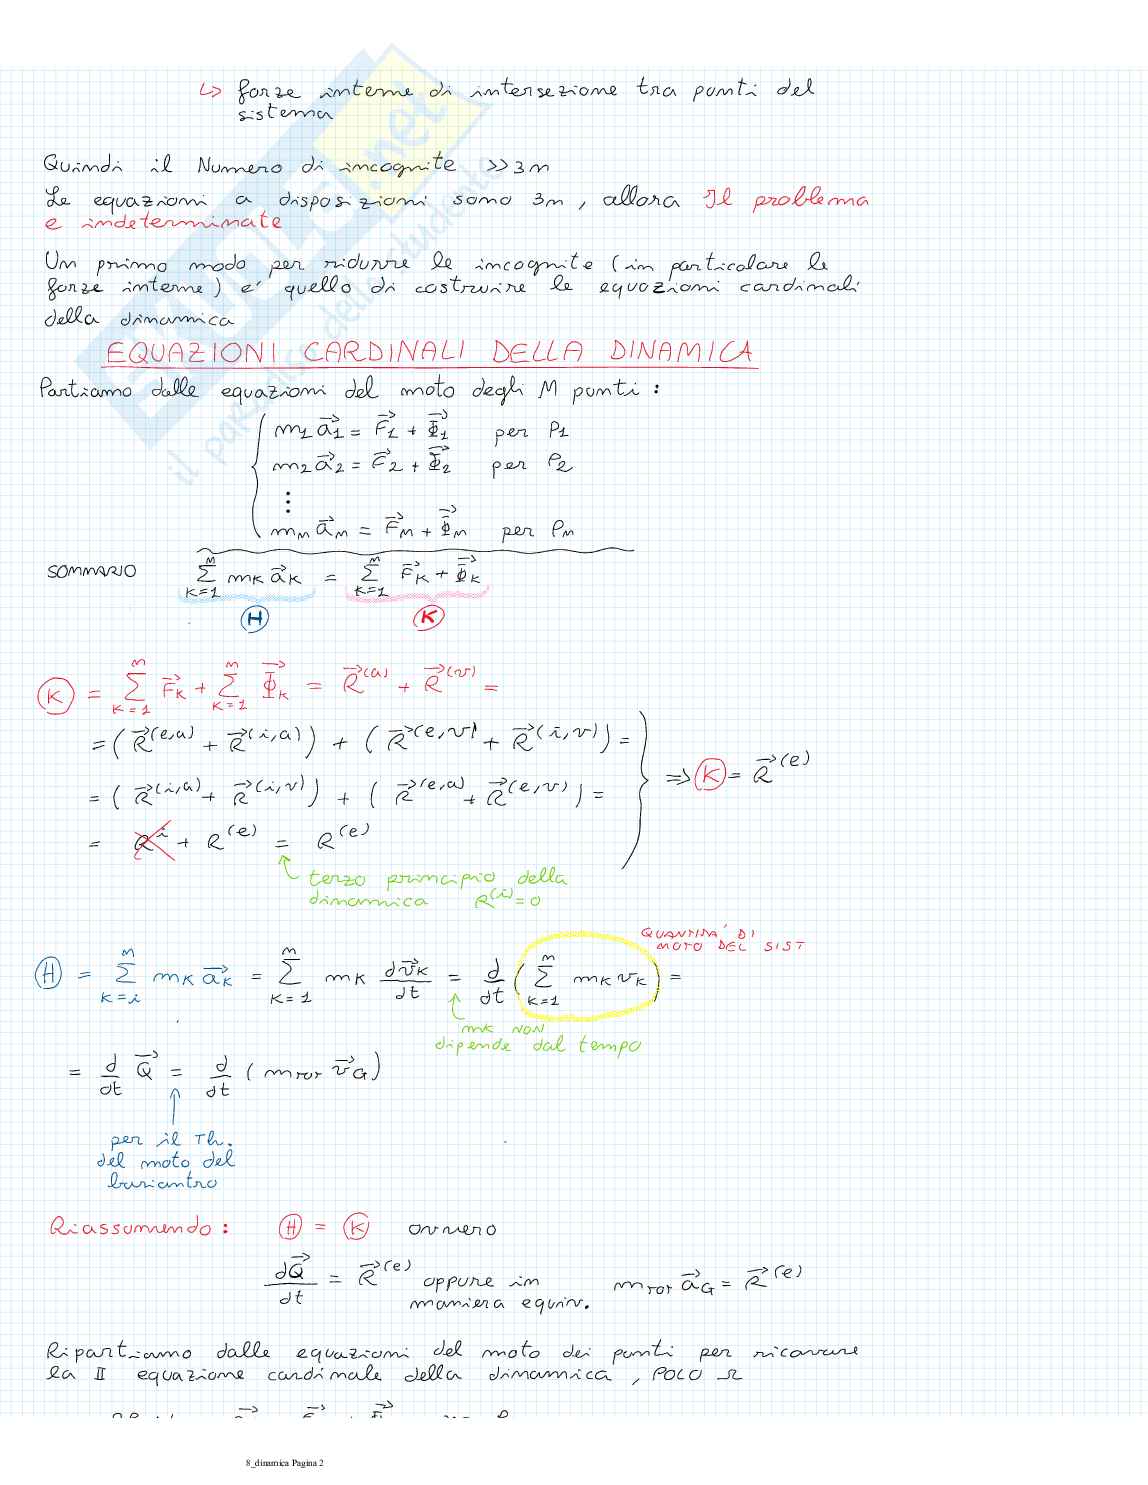 ↳ forze interne di intersezione tra punti del
sistema
Quindi il Numero di incognite >>3n
Le equazioni a disposizioni sono 3n, allora Il problema
e indeterminate
Un primo modo per ridurre le incognite (in particolare le
forze interne) e' quello di costruire le equazioni cardinali
della dinamica
EQUAZIONI CARDINALI DELLA DINAMICA
Partiamo dalle equazioni del moto degli M punti :
m₁ a⃗₁ = F⃗₁ + Φ⃗₁ per P₁
m₂ a⃗₂ = F⃗₂ + Φ⃗₂ per P₂
⋮
m_M a⃗_M = F⃗_M + Φ⃗_M per P_M
SOMMARIO ∑_{K=1}^{M} m_K a⃗_K = ∑_{K=1}^{M} F⃗_K + Φ⃗_K
H K
K = ∑_{K=1}^{M} F⃗_K + ∑_{K=1}^{M} Φ⃗_K = R⃗^(a) + R⃗^(v) =
= (R⃗^(e,a) + R⃗^(i,a)) + (R⃗^(e,v) + R⃗^(i,v)) =
= (R⃗^(i,a) + R⃗^(i,v)) + (R⃗^(e,a) + R⃗^(e,v)) = ⇒ K = R⃗^(e)
= R^i + R^(e) = R^(e)
terzo principio della
dinamica R^(i) = 0
QUANTITA' DI
MOTO DEL SIST
H = ∑_{K=i}^{M} m_K a⃗_K = ∑_{K=1}^{M} m_K dv⃗_K/dt = d/dt (∑_{K=1}^{M} m_K v_K) =
mk NON
dipende dal tempo
= d/dt Q⃗ = d/dt (m_TOT v⃗_G)
per il Th.
del moto del
baricentro
Riassumendo : H = K ovvero
dQ⃗/dt = R⃗^(e) oppure in m_TOT a⃗_G = R⃗^(e)
maniera equiv.
Ripartiamo dalle equazioni del moto dei punti per ricavare
la II equazione cardinale della dinamica, POLO Ω
8_dinamica Pagina 2
il paradiso dello studente